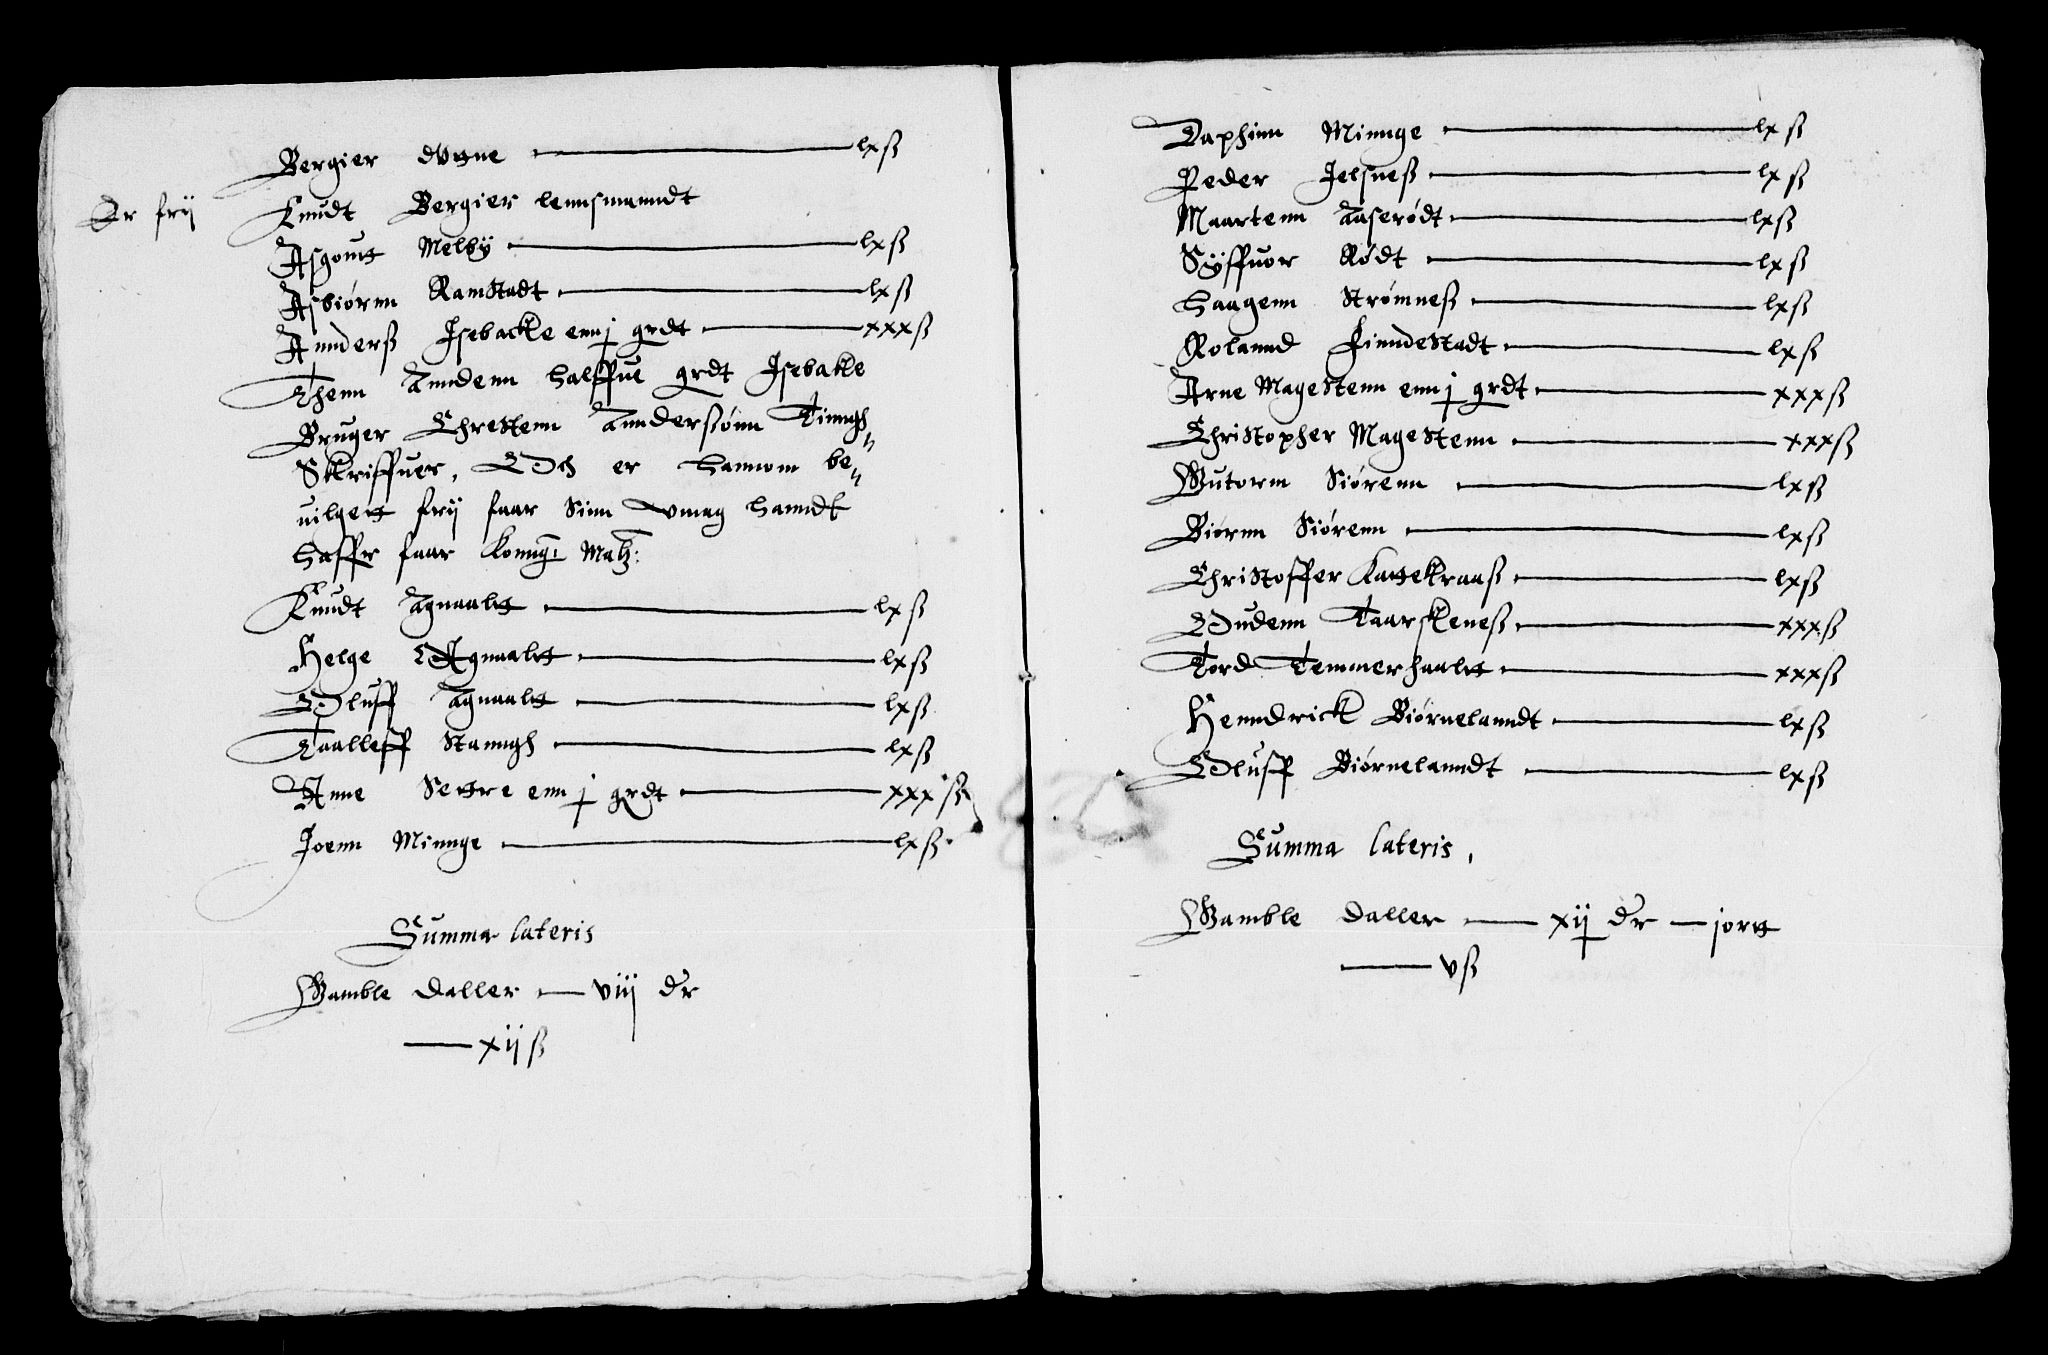 Bergier Øffne — lx ß
Er frij
Knudt Bergier lennsmanndt
Asgoutt Melby — lx ß
Asbiørnn RamStadt — lx ß
Annderß Isebackle enn j grdt — xxx ß
Thenn Anndenn halffue grdt Isebakle
Bruger Chrestenn Annderssønn Tinngh„
Skriffuer, Och er hannom be„
uilgett frij faar Sinn Vmag hanndt
haffr faar Konng: Matz:
Knudt Agnaaltt — lx ß
Helge Agnaaltt — lx ß
Oluff Agnaaltt — lx ß
Taalleff Stanngh — lx ß
Anne Settre enn j grdt — xxx ß
Joenn Minnge — lx ß
Summa lateris
Gamble daller — viij dr
— xij ß
Daphinn Minnge — lx ß
Peder Jelsneß — lx ß
Maartenn Aaserødt — lx ß
Syffuor Rødt — lx ß
Haagenn Strømneß — lx ß
Rolannd FinndeStadt — lx ß
Arne Magestenn enn j grdt — xxx ß
Christopher Magestenn — xxx ß
Gutorm Siørenn — lx ß
Biørnn Siørenn — lx ß
Christoffer Kattekraaß — lx ß
Oudenn Taarskleneß — xxx ß
Tord Temmerhaaltt — xxx ß
Henndrick Biørnelanndt — lx ß
Oluff Biørnelanndt — lx ß
Summa lateris,
Gamble daller — xij dr — j ortt
— v ß